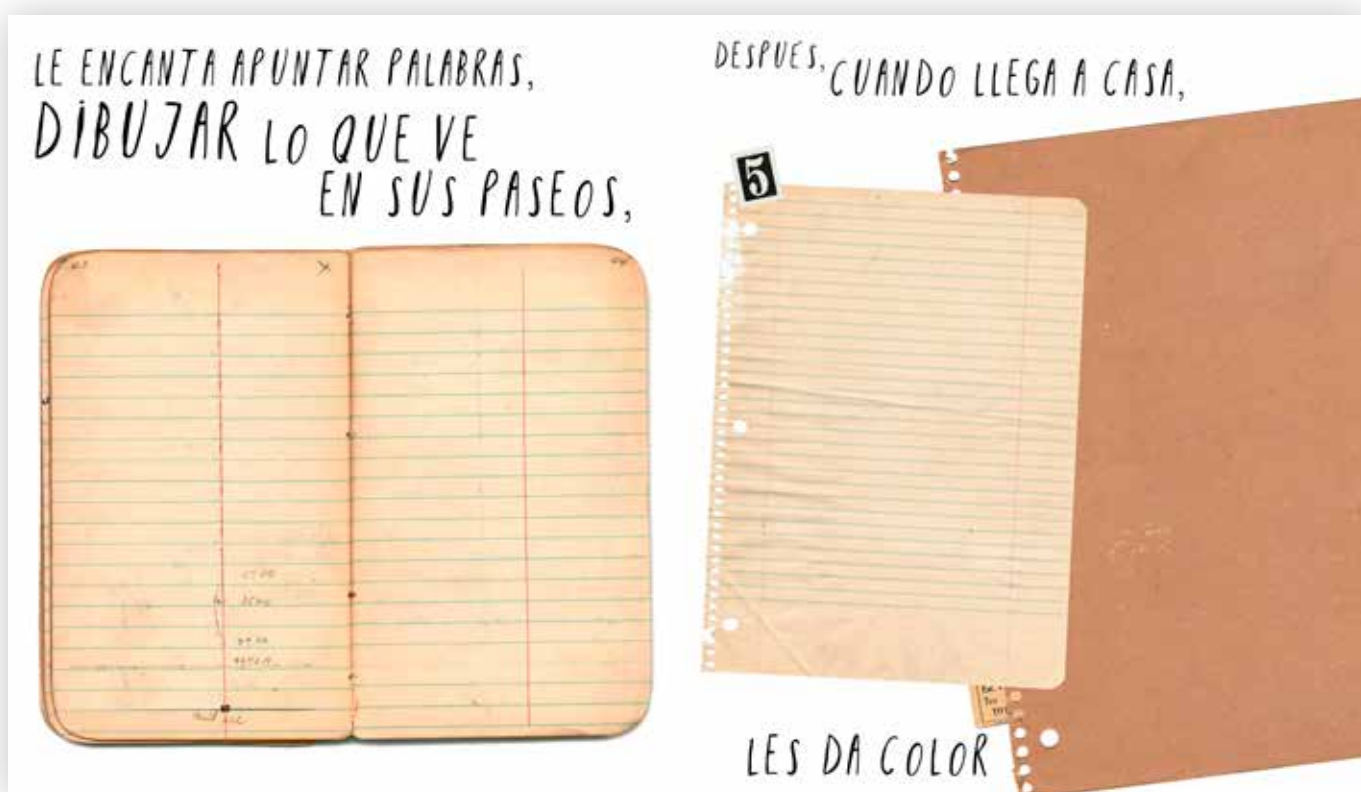 LE ENCANTA APUNTAR PALABRAS,
DIBUJAR LO QUE VE
EN SUS PASEOS,
DESPUES, CUANDO LLEGA A CASA,
5
LES DA COLOR